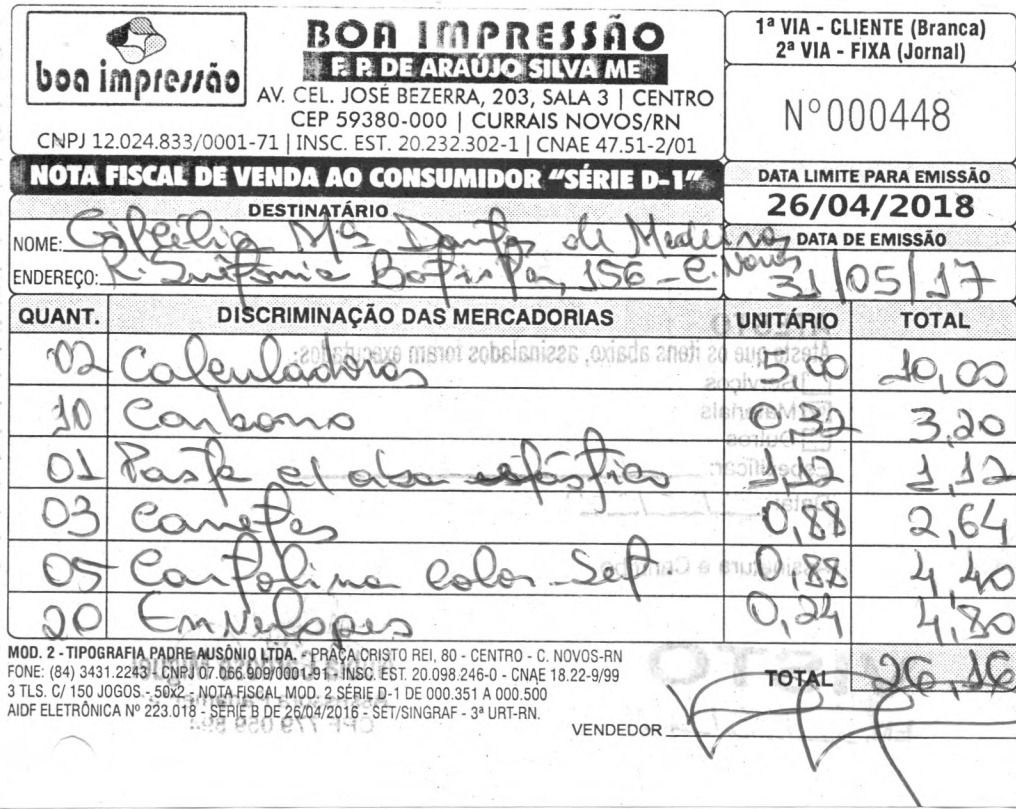 boa impressão
BOA IMPRESSÃO
F. P. DE ARAÚJO SILVA ME
AV. CEL. JOSÉ BEZERRA, 203, SALA 3 | CENTRO
CEP 59380-000 | CURRAIS NOVOS/RN
CNPJ 12.024.833/0001-71 | INSC. EST. 20.232.302-1 | CNAE 47.51-2/01
1ª VIA - CLIENTE (Branca)
2ª VIA - FIXA (Jornal)
Nº000448
NOTA FISCAL DE VENDA AO CONSUMIDOR “SÉRIE D-1”
DATA LIMITE PARA EMISSÃO
26/04/2018
DESTINATÁRIO
NOME: Mª Dantas de Medeiros
ENDEREÇO: R. Batista, 156 - C. Novos
DATA DE EMISSÃO
31/05/17
QUANT. DISCRIMINAÇÃO DAS MERCADORIAS UNITÁRIO TOTAL
02 Calculadoras 5,00 10,00
10 Carbono 0,32 3,20
01 Pasta c/ aba elástico 1,12 1,12
03 Canetas 0,88 2,64
05 Cartolina Color Set. 0,88 4,40
20 Envelopes 0,24 4,80
MOD. 2 - TIPOGRAFIA PADRE AUSÔNIO LTDA. - PRAÇA CRISTO REI, 80 - CENTRO - C. NOVOS-RN
FONE: (84) 3431.2243 - CNPJ 07.066.909/0001-91 - INSC. EST. 20.098.246-0 - CNAE 18.22-9/99
3 TLS. C/ 150 JOGOS - 50x2 - NOTA FISCAL MOD. 2 SÉRIE D-1 DE 000.351 A 000.500
AIDF ELETRÔNICA Nº 223.018 - SÉRIE B DE 26/04/2016 - SET/SINGRAF - 3ª URT-RN.
TOTAL 26,16
VENDEDOR